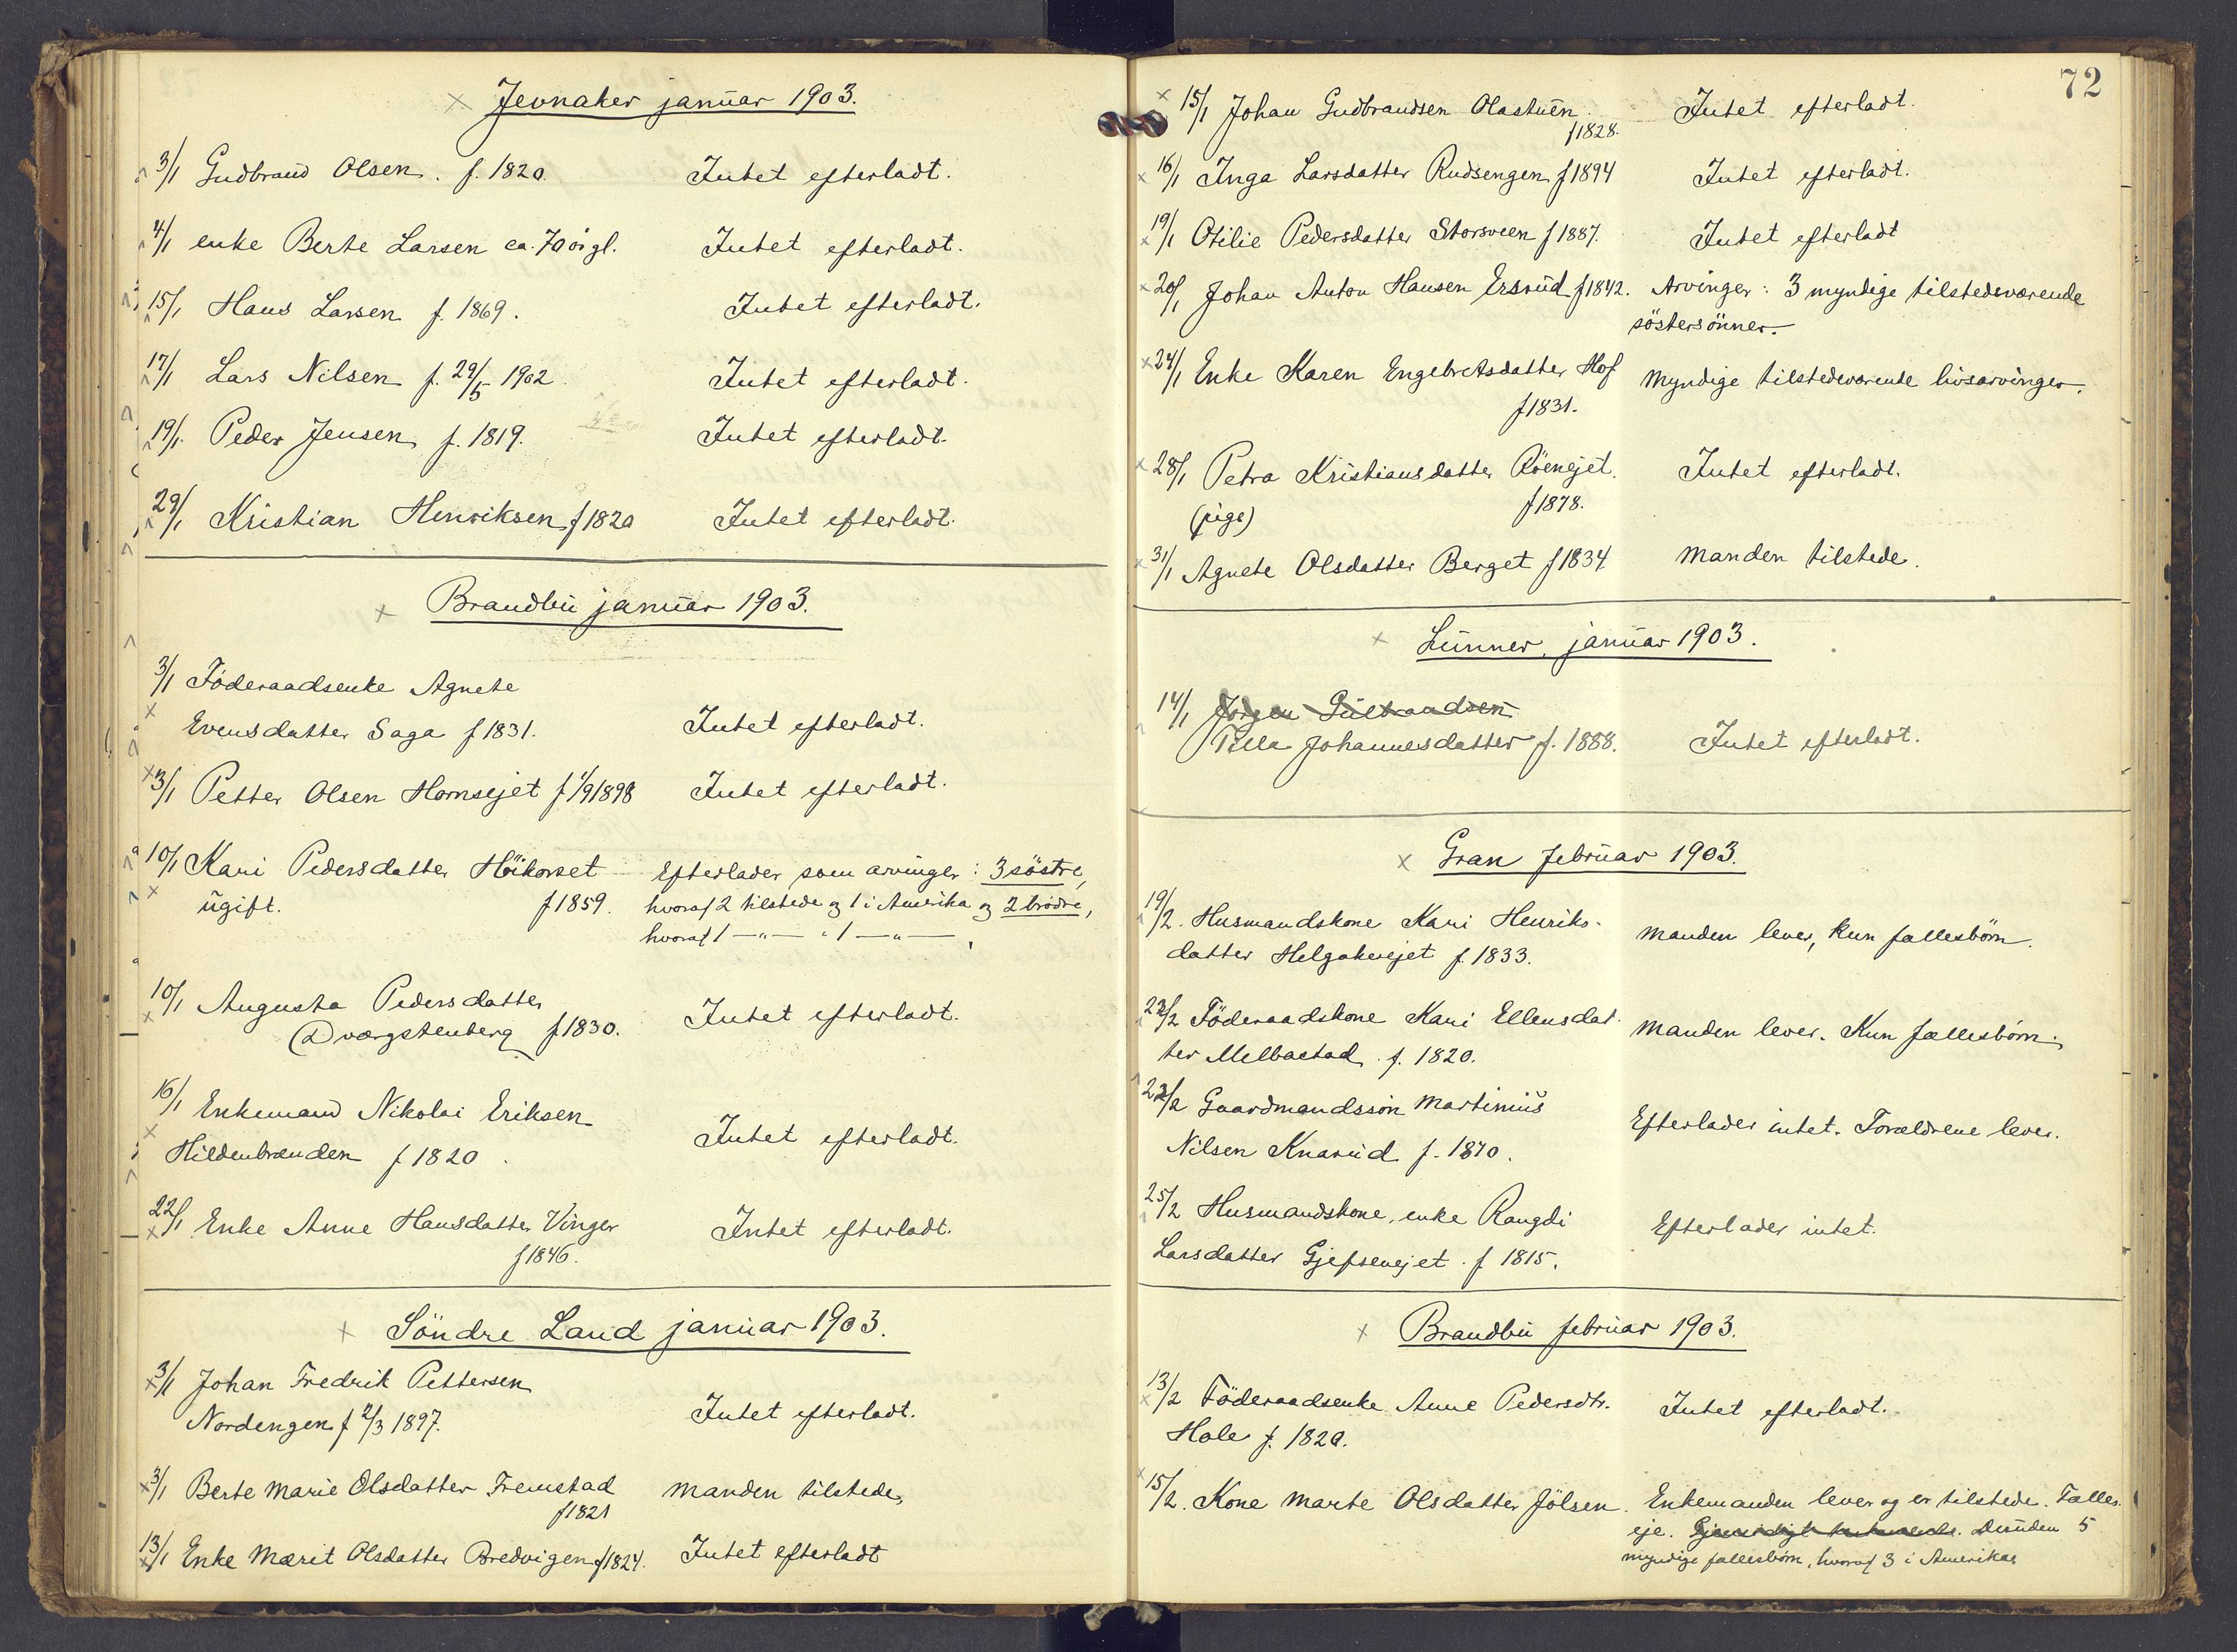 Jevnaker januar 1903.
3/1 Gudbrand Olsen. f. 1820 Intet efterladt.
4/1 enke Berte Larsen ca. 70 år gl. Intet efterladt.
15/1 Hans Larsen f. 1869. Intet efterladt.
17/1 Lars Nilsen f. 29/5 1902. Intet efterladt.
19/1 Peder Jensen f. 1819. Intet efterladt.
29/1 Kristian Henriksen f 1820 Intet efterladt.
Brandbu januar 1903.
3/1 Föderaadsenke Agnete
Evensdatter Saga f 1831. Intet efterladt.
3/1 Petter Olsen Hornsejet f 1/9 1898 Intet efterladt.
10/1 Kari Pedersdatter Höikorset Efterlader som arvinger: 3 söstre,
ugift. f 1859. hvoraf 2 tilstede og 1 i Amerika og 2 brödre,
hvoraf 1 —"— " 1 —"—,
10/1 Augusta Pedersdatter
Dværgstenberg f 1830. Intet efterladt.
16/1 Enkemand Nikolai Eriksen
Hildenbrænden f 1820. Intet efterladt.
22/1 Enke Anne Hansdatter Vinger Intet efterladt.
f 1846.
Söndre Land januar 1903.
3/1 Johan Fredrik Pettersen
Nordengen f 2/3 1897. Intet efterladt.
3/1 Berte Marie Olsdatter Fremstad Manden tilstede,
f 1821
13/1 Enke Marit Olsdatter Bredvigen f 1824. Intet efterladt
72
15/1 Johan Gudbrandsen Olastuen. Intet efterladt.
f 1828.
16/1 Inga Larsdatter Rudsengen f 1894 Intet efterladt.
19/1 Otilie Pedersdatter Storsveen f 1887. Intet efterladt
20/1 Johan Anton Hansen Ersrud f 1842. Arvinger: 3 myndige tilstedeværende
söstersönner.
24/1 Enke Karen Engebretsdatter Hof Myndige tilstedeværende livsarvinger.
f 1831.
28/1 Petra Kristiansdatter Röenejet. Intet efterladt.
(pige) f 1878.
31/1 Agnete Olsdatter Berget f 1834 Manden tilstede.
Lunner, januar 1903.
14/1 Jörgen Gulbrandsen
Pella Johannesdatter f. 1888. Intet efterladt.
Gran februar 1903.
19/2. Husmandskone Kari Henriks-
datter Helgakerejet f. 1833. Manden lever, kun fællesbörn.
23/2 Föderaadskone Kari Ellensdat- Manden lever. Kun fællesbörn.
ter Melbostad f. 1820.
23/2 Gaardmandssön Martinius
Nilsen Knarud f. 1870. Efterlader intet. Forældrene lever.
25/2 Husmandskone, enke Rangdi Efterlader intet.
Larsdatter Gjefsenejet. f 1815.
Brandbu februar 1903.
13/2 Föderaadsenke Anne Pedersdtr. Intet efterladt.
Hole f. 1820.
15/2. Kone Marte Olsdatter Jölsen. Enkemanden lever og er tilstede. Fælles-
eje. Gjensidigt testamente. Desuden 5
myndige fællesbörn, hvoraf 3 i Amerika.